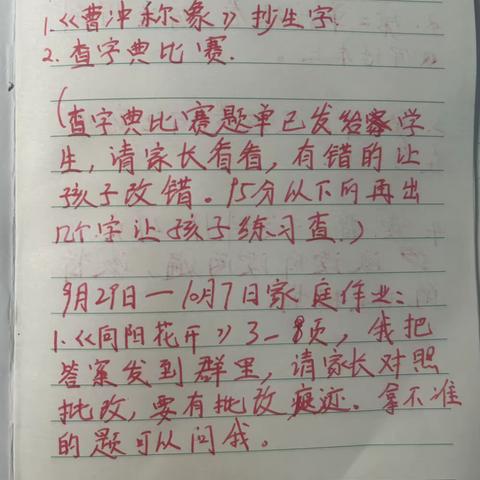 1.《曹冲称象》抄生字
2. 查字典比赛.
(查字典比赛题单已发给学
生,请家长看看,有错的让
孩子改错。95分以下的再出
几个字让孩子练习查.)
9月29日—10月7日家庭作业:
1.《向阳花开》3-8页,我把
答案发到群里,请家长对照
批改,要有批改痕迹.拿不准
的题可以问我。